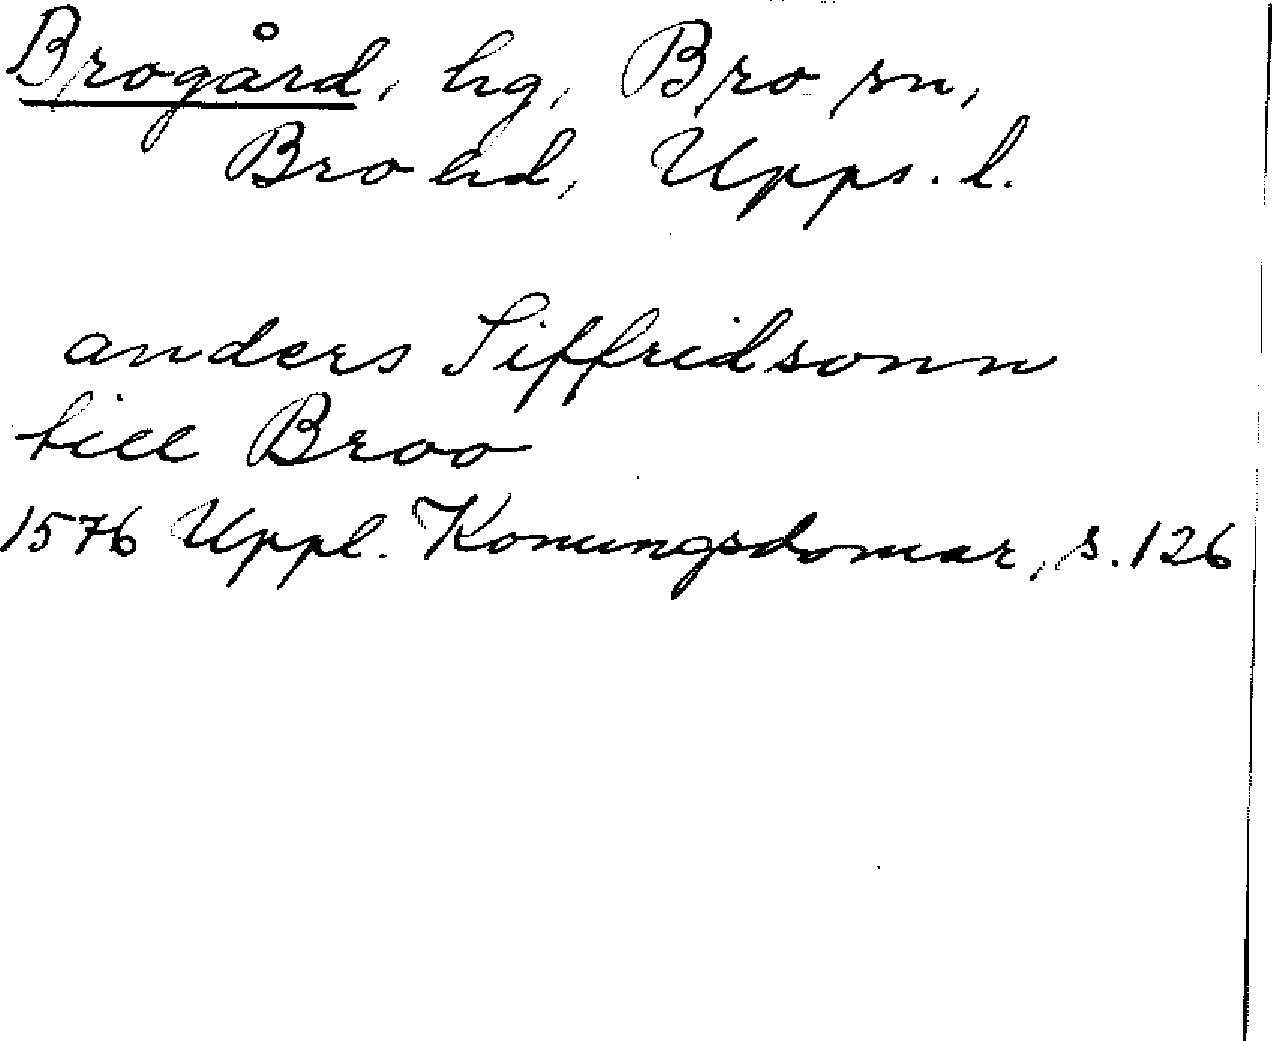 Brogård, hg, Bro sn,
Bro hd, Upps. l.
anders Siffridsonn
till Broo
1576 Uppl. Konungsdomar, s. 126